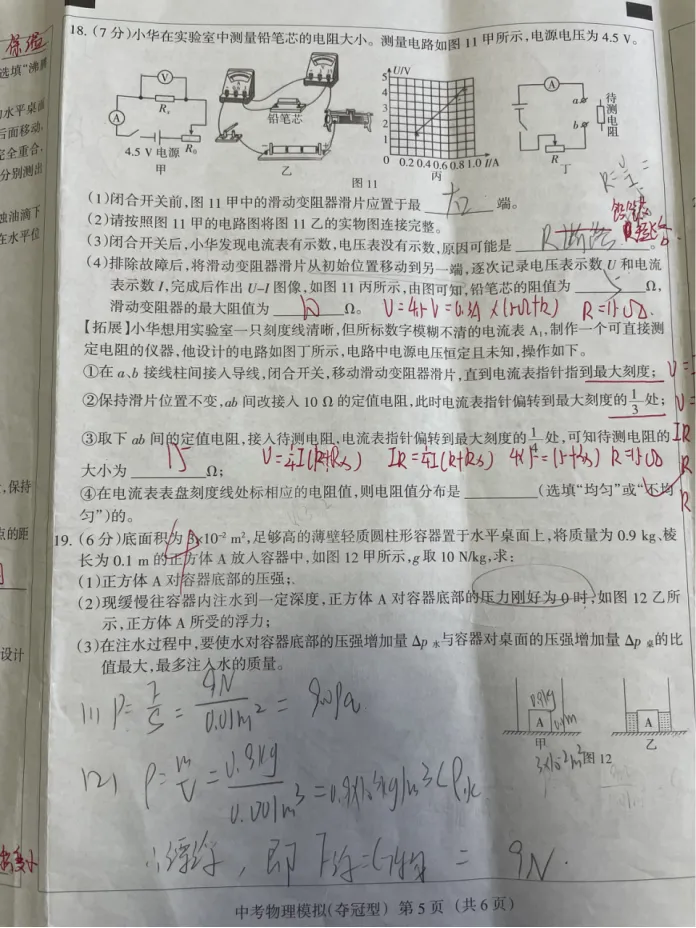 保险
选填“沸腾
水平桌面
后面移动,
完全重合,
分别测出
油滴下
在水平位
,保持
点的距
设计
18. (7 分)小华在实验室中测量铅笔芯的电阻大小。测量电路如图 11 甲所示,电源电压为 4.5 V。
V
Rx
A
4.5 V 电源 R0
甲
铅笔芯
乙
U/V
5
4
3
2
1
0 0.2 0.4 0.6 0.8 1.0 I/A
丙
A
a
b
待测电阻
R
丁
图 11
(1)闭合开关前,图 11 甲中的滑动变阻器滑片应置于最 右 端。
(2)请按照图 11 甲的电路图将图 11 乙的实物图连接完整。
(3)闭合开关后,小华发现电流表有示数,电压表没有示数,原因可能是 。
(4)排除故障后,将滑动变阻器滑片从初始位置移动到另一端,逐次记录电压表示数 U 和电流
表示数 I,完成后作出 U–I 图像,如图 11 丙所示,由图可知,铅笔芯的阻值为 5 Ω,
滑动变阻器的最大阻值为 10 Ω。
R=15Ω
【拓展】小华想用实验室一只刻度线清晰,但所标数字模糊不清的电流表 A1,制作一个可直接测
定电阻的仪器,他设计的电路如图丁所示,电路中电源电压恒定且未知,操作如下。
①在 a、b 接线柱间接入导线,闭合开关,移动滑动变阻器滑片,直到电流表指针指到最大刻度;
②保持滑片位置不变,ab 间改接入 10 Ω 的定值电阻,此时电流表指针偏转到最大刻度的 1/3 处;
③取下 ab 间的定值电阻,接入待测电阻,电流表指针偏转到最大刻度的 1/4 处,可知待测电阻的
大小为 15 Ω;
U=1/4I(R+Rx) IR=1/4I(R+Rx)
④在电流表表盘刻度线处标相应的电阻值,则电阻值分布是 (选填“均匀”或“不均
匀”)的。
19. (6 分)底面积为 3×10⁻² m²,足够高的薄壁轻质圆柱形容器置于水平桌面上,将质量为 0.9 kg、棱
长为 0.1 m 的正方体 A 放入容器中,如图 12 甲所示,g 取 10 N/kg,求:
(1)正方体 A 对容器底部的压强;
(2)现缓慢往容器内注水到一定深度,正方体 A 对容器底部的压力刚好为 0 时,如图 12 乙所
示,正方体 A 所受的浮力;
(3)在注水过程中,要使水对容器底部的压强增加量 Δp水与容器对桌面的压强增加量 Δp桌的比
值最大,最多注入水的质量。
(1) P=F/S=9N/0.01m²=900Pa
0.9kg
A 0.1m
甲
A
乙
3×10⁻²m²
图 12
(2) ρ=m/V=0.9kg/0.001m³=0.9×10³kg/m³<ρ水
∴漂浮,即F浮=G物=9N.
中考物理模拟(夺冠型) 第 5 页 (共 6 页)